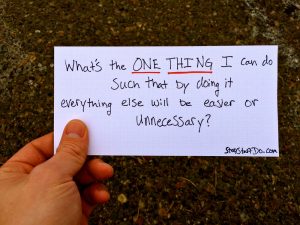 What's the ONE THING I can do
such that by doing it
everything else will be easier or
unnecessary?